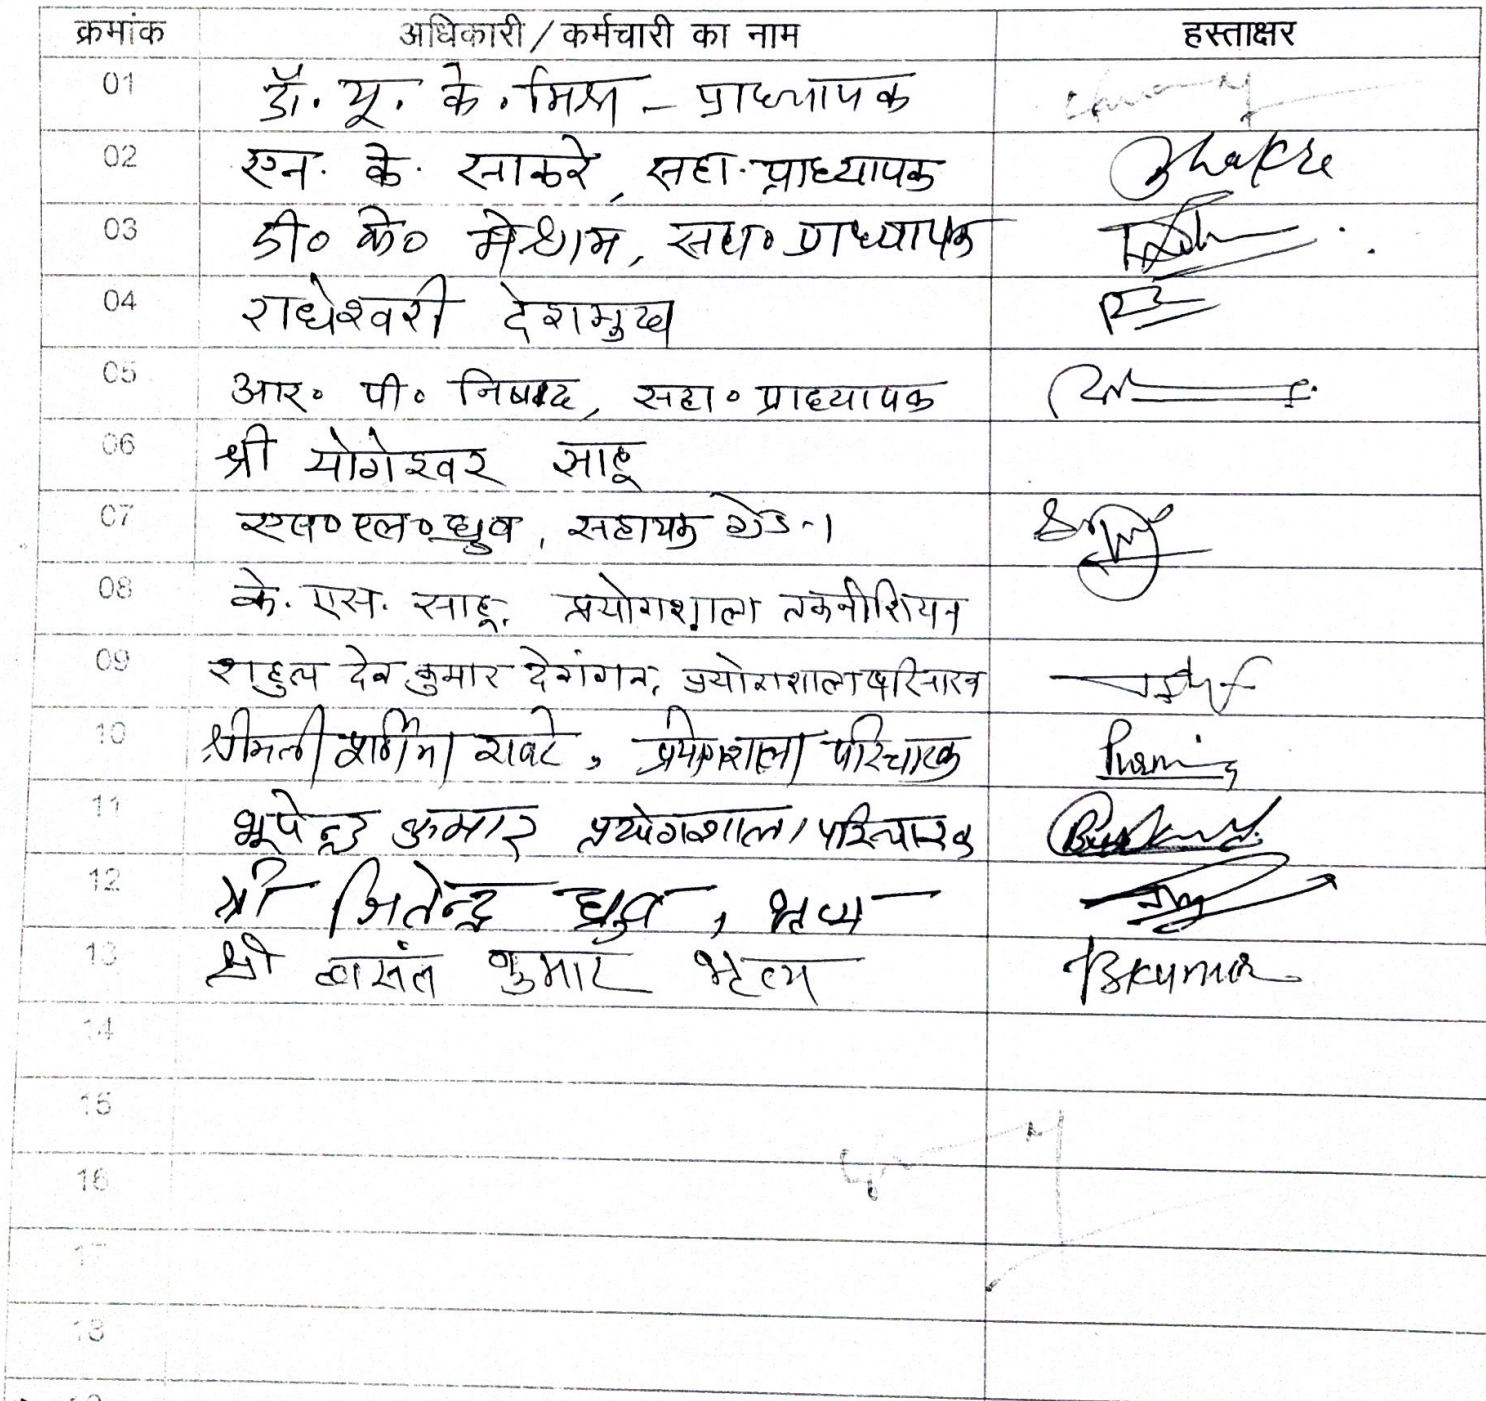 क्रमांक अधिकारी/कर्मचारी का नाम हस्ताक्षर
01 डॉ. यू. के. मिश्र - प्राध्यापक
02 एन. के. साकरे, सहा. प्राध्यापक
03 डी० के० मेश्राम, सहा० प्राध्यापक
04 राधेश्वरी देशमुख
05 आर० पी० निषाद, सहा० प्राध्यापक
06 श्री योगेश्वर साहू
07 एल० ध्रुव, सहायक ग्रेड-1
08 के. एस. साहू, प्रयोगशाला तकनीशियन
09 राहुल देव कुमार देवांगन, प्रयोगशाला परिचारक
10 श्रीमती रावटे, प्रयोगशाला परिचारक
11 भूपेन्द्र कुमार प्रयोगशाला परिचारक
12 श्री जितेन्द्र ध्रुव, भृत्य
13 श्री बासंत कुमार भृत्य BKumar
14
15
16
17
18